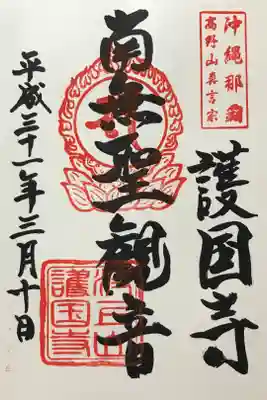 沖縄那覇
高野山真言宗
護国寺
南無聖観音
平成三十一年三月十日
護国寺